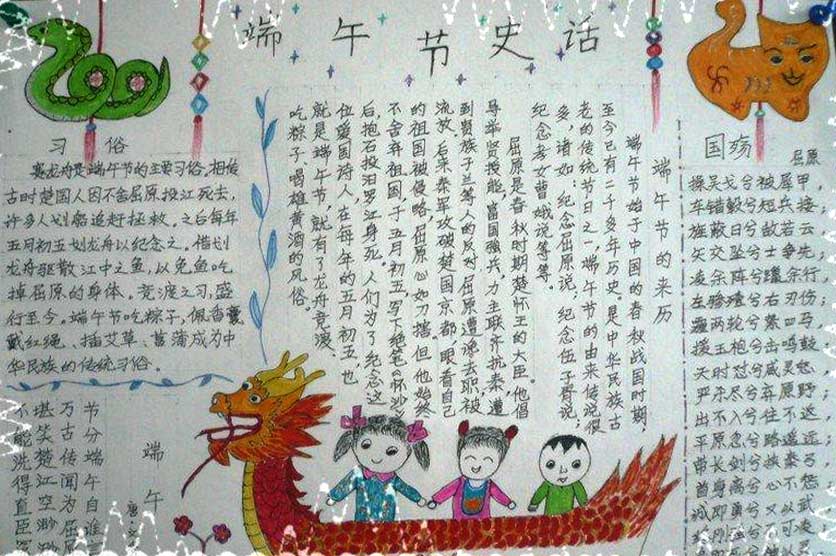 端午节史话
习俗
赛龙舟是端午节的主要习俗。相传
古时楚国人因不舍屈原投江死去，
许多人划船追赶拯救。之后每年
五月初五划龙舟以纪念之。借划
龙舟驱散江中之鱼，以免鱼吃
掉屈原的身体。竞渡之习，盛
行至今。端午节吃粽子，佩香囊
戴红绳、插艾草、菖蒲成为中
华民族的传统习俗。
端午节的来历
端午节始于中国的春秋战国时期，
至今已有二千多年历史。是中华民族古
老的传统节日之一，端午节的由来传说很
多，诸如：纪念屈原说；纪念伍子胥说；
纪念孝女曹娥说等等。
屈原是春秋时期楚怀王的大臣，他倡
导举贤授能，富国强兵，力主联齐抗秦，遭
到贵族子兰等人的反对，屈原遭谗去职，被
流放。后来秦军攻破楚国京都，眼看自己
的祖国被侵略，屈原心如刀搐，但他始终
不舍弃祖国，于五月初五写下绝笔《怀沙》
后，抱石投汨罗江身死，人们为了纪念这
位爱国诗人，在每年的五月初五，也
就是端午节，就有了龙舟竞渡、
吃粽子、喝雄黄酒的风俗。
国殇
屈原
操吴戈兮被犀甲，
车错毂兮短兵接，
旌蔽日兮敌若云，
矢交坠兮士争先，
凌余阵兮躐余行，
左骖殪兮右刃伤；
霾两轮兮絷四马，
援玉枹兮击鸣鼓，
天时怼兮威灵怒，
严杀尽兮弃原野；
出不入兮往不返，
平原忽兮路遥远；
带长剑兮挟秦弓，
首身离兮心不惩，
诚即勇兮又以武，
终刚强兮不可凌，
端午
唐·文
节分端午自谁
万古传闻为屈原
堪笑楚江空渺渺
不能洗得直臣